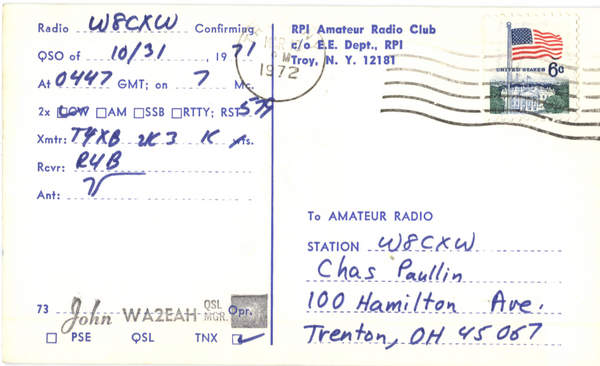 Radio W8CXW Confirming
QSO of 10/31, 1971
At 0447 GMT; on 7 Mc.
2x CW AM SSB RTTY; RST 579
Xmtr: T4XB 2K3 K
Rcvr: R4B
Ant: V
73 John WA2EAH QSL MGR. Opr.
PSE QSL TNX ✓
RPI Amateur Radio Club
c/o E.E. Dept., RPI
Troy, N. Y. 12181
1972
UNITED STATES 6c
To AMATEUR RADIO
STATION W8CXW
Chas Paullin
100 Hamilton Ave.
Trenton, OH 45067